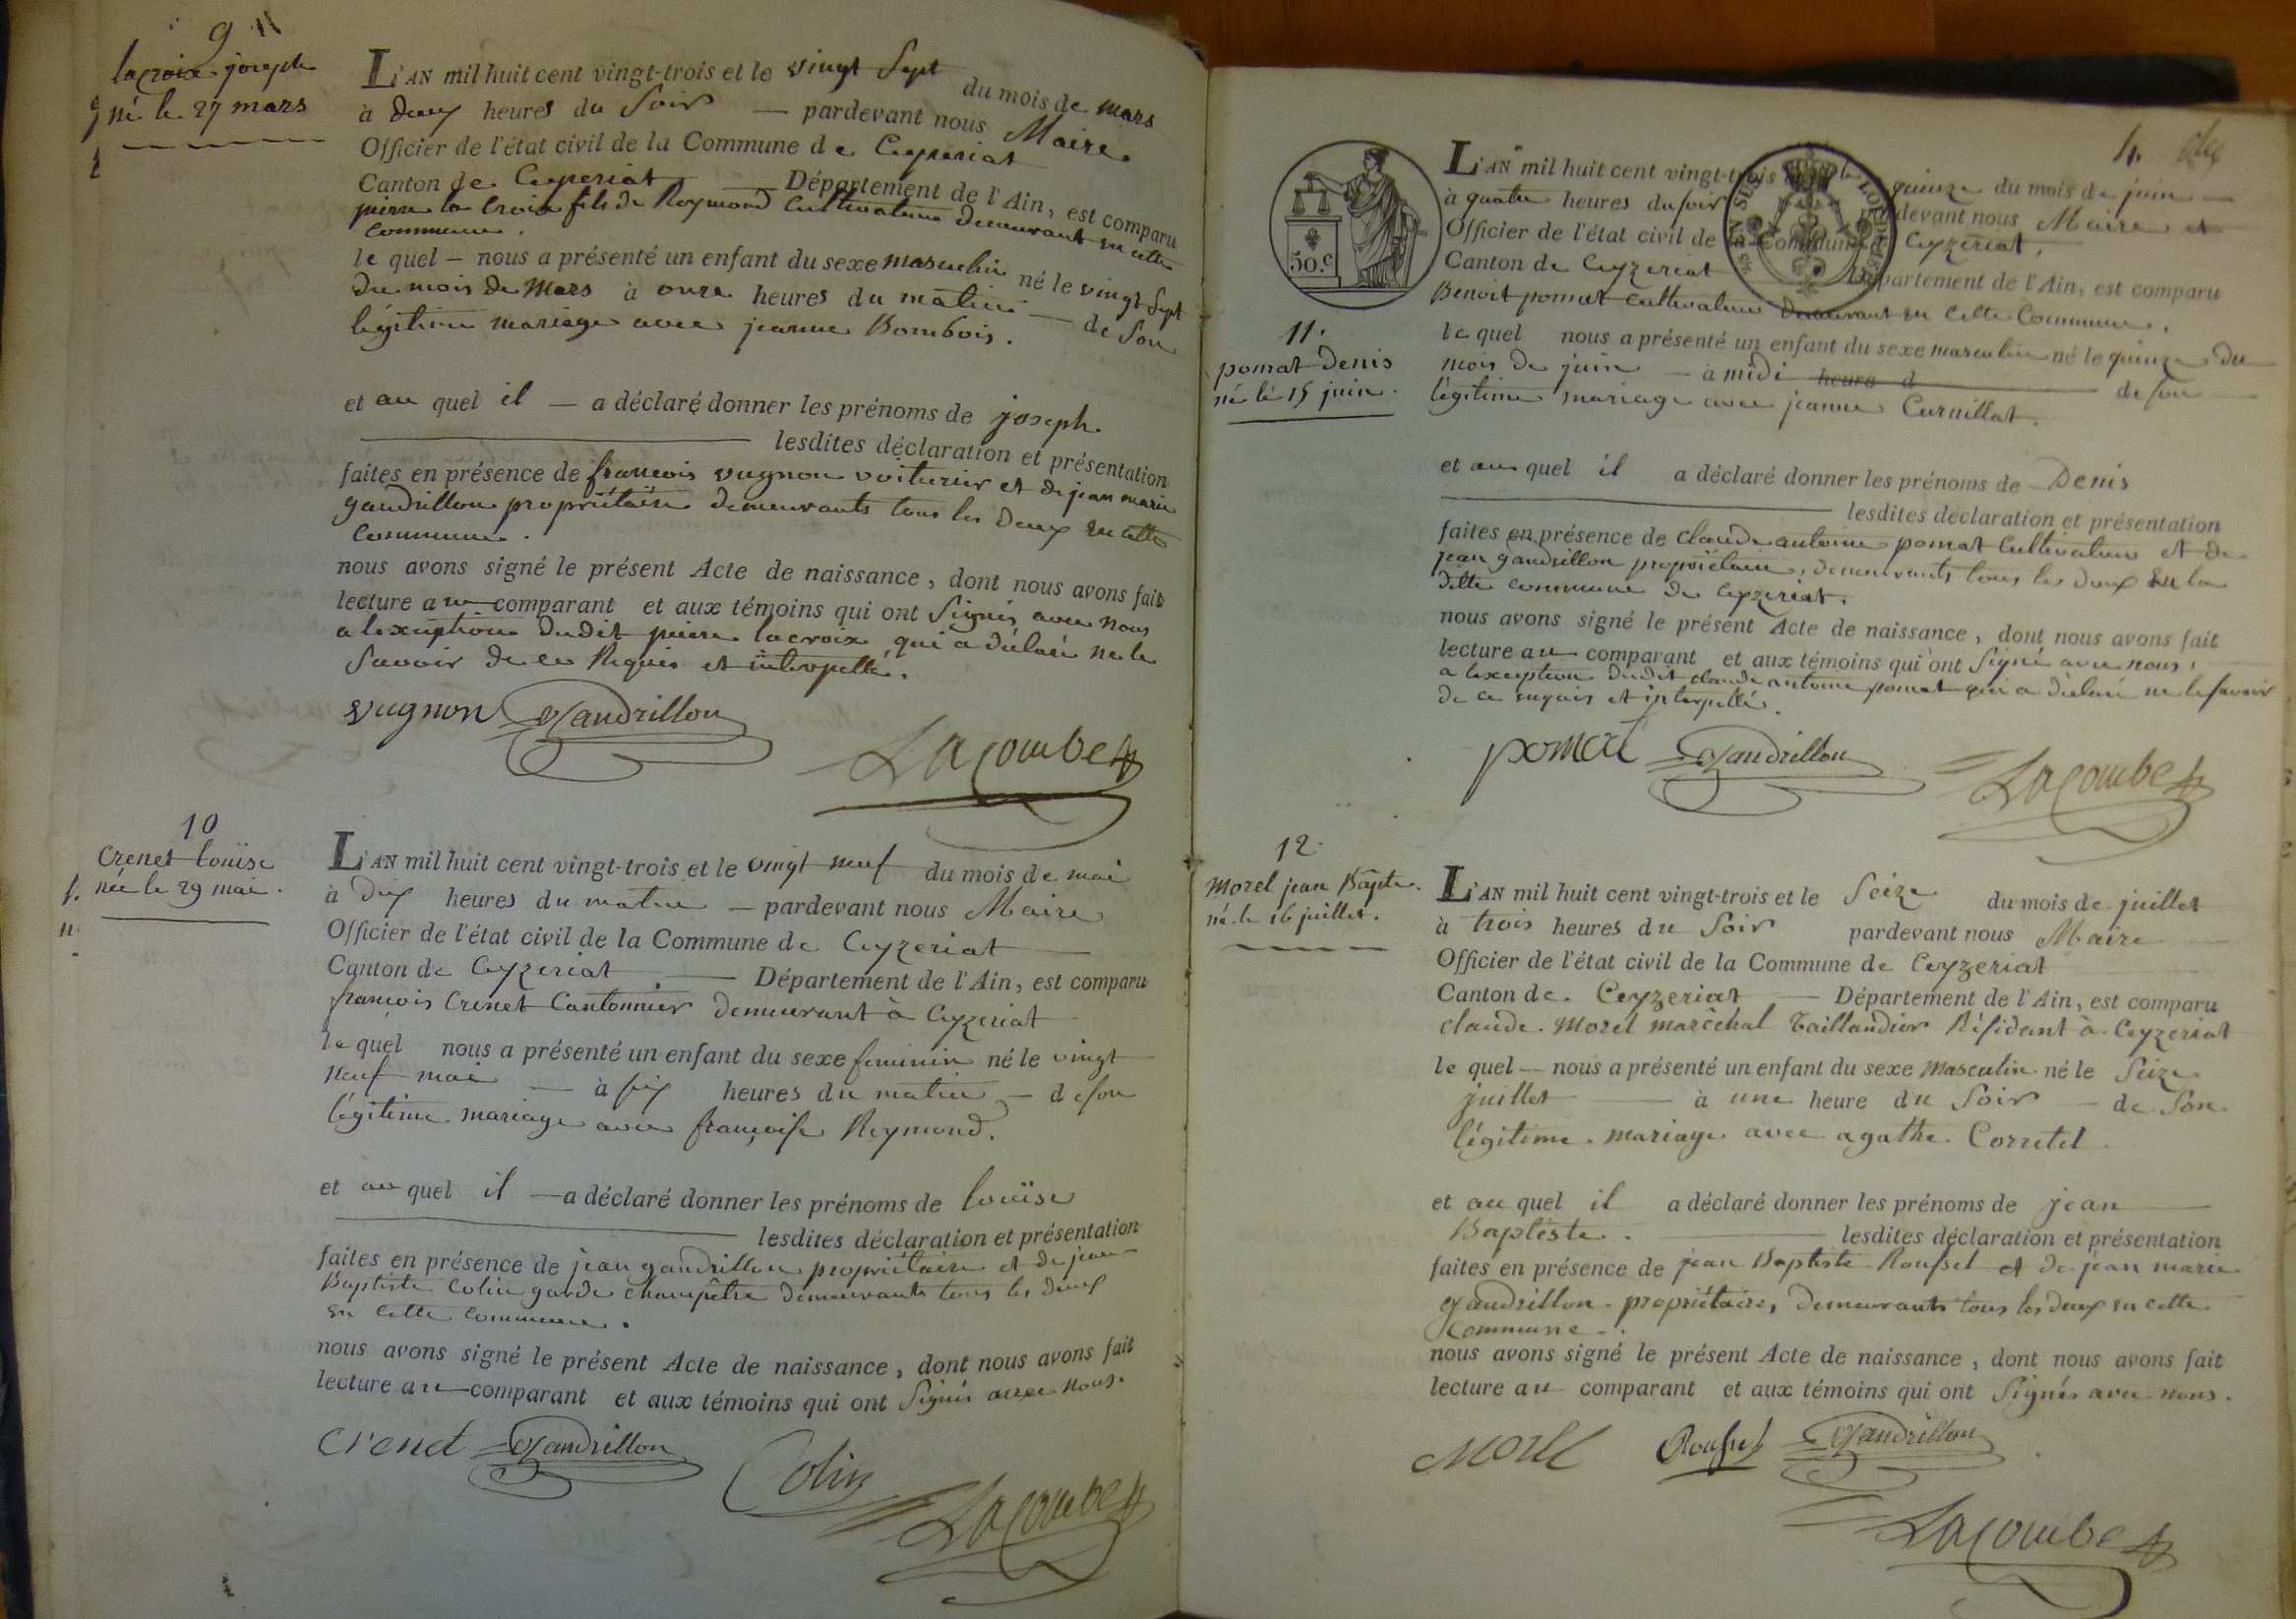 9
lacroix joseph
né le 27 mars
L'AN mil huit cent vingt-trois et le vingt Sept du mois de mars
à deux heures du Soir — pardevant nous Maire
Officier de l'état civil de la Commune de Ceyzeriat
Canton de Ceyzeriat — Département de l'Ain, est comparu
pierre la Croix fils de Reymond Cultivateur demeurant en cette
Commune.
le quel — nous a présenté un enfant du sexe masculin né le vingt Sept
du mois de Mars à onze heures du matin — de Son
légitime mariage avec jeanne Bombois.
et au quel il — a déclaré donner les prénoms de joseph
lesdites déclaration et présentation
faites en présence de francois vugnon voiturier et de jean marie
gandrillon propriétaire demeurants tous les deux en cette
Commune.
nous avons signé le présent Acte de naissance, dont nous avons fait
lecture au comparant et aux témoins qui ont Signés avec nous
a lexception dudit pierre lacroix, qui a déclaré ne le
Savoir de ce Requis et interpellé.
vugnon Gandrillon
Lacombe
10
Crenet louïse
née le 29 mai.
L'AN mil huit cent vingt-trois et le vingt neuf du mois de mai
à dix heures du matin — pardevant nous Maire
Officier de l'état civil de la Commune de Ceyzeriat
Canton de Ceyzeriat — Département de l'Ain, est comparu
françois Crenet Cantonnier demeurant à Ceyzeriat
le quel nous a présenté un enfant du sexe feminin né le vingt
neuf mai — à six heures du matin — de son
légitime mariage avec françoise Reymond.
et au quel il — a déclaré donner les prénoms de louïse
lesdites déclaration et présentation
faites en présence de jean gandrillon propriétaire et de jean
Baptiste Colin garde champêtre demeurants tous les deux
en cette commune.
nous avons signé le présent Acte de naissance, dont nous avons fait
lecture au comparant et aux témoins qui ont Signés avec nous.
Crenet Gandrillon
Colin
Lacombe
4.
50.c
L'AN mil huit cent vingt-trois et le quinze du mois de juin
à quatre heures du soir pardevant nous Maire et
Officier de l'état civil de la Commune de Ceyzeriat,
Canton de Ceyzeriat Département de l'Ain, est comparu
Benoit pomat Cultivateur demeurant en cette Commune.
11.
pomat Denis
né le 15 juin.
le quel nous a présenté un enfant du sexe masculin né le quinze du
mois de juin — à midi heure d de son
légitime mariage avec jeanne Curnillat.
et au quel il a déclaré donner les prénoms de Denis
lesdites déclaration et présentation
faites en présence de Claude antoine pomat Cultivateur et de
jean gandrillon propriétaire, demeurants tous les deux en la
ditte commune de Ceyzeriat.
nous avons signé le présent Acte de naissance, dont nous avons fait
lecture au comparant et aux témoins qui ont Signé avec nous,
a lexception dudit claude antoine pomat qui a déclaré ne le savoir
de ce requis et interpellé.
pomat Gandrillon
Lacombe
12.
Morel jean Bapte.
né le 16 juillet.
L'AN mil huit cent vingt-trois et le Seize du mois de juillet
à trois heures du Soir pardevant nous Maire
Officier de l'état civil de la Commune de Ceyzeriat
Canton de Ceyzeriat — Département de l'Ain, est comparu
claude Morel maréchal Taillandier Résidant à Ceyzeriat
le quel — nous a présenté un enfant du sexe Masculin né le Seize
juillet — à une heure du Soir — de Son
légitime mariage avec agathe Corretel.
et au quel il a déclaré donner les prénoms de jean
Baptiste. lesdites déclaration et présentation
faites en présence de jean Baptiste Roussel et de jean marie
gandrillon propriétaires, demeurants tous les deux en cette
Commune.
nous avons signé le présent Acte de naissance, dont nous avons fait
lecture au comparant et aux témoins qui ont Signés avec nous.
Morel Roussel Gandrillon
Lacombe